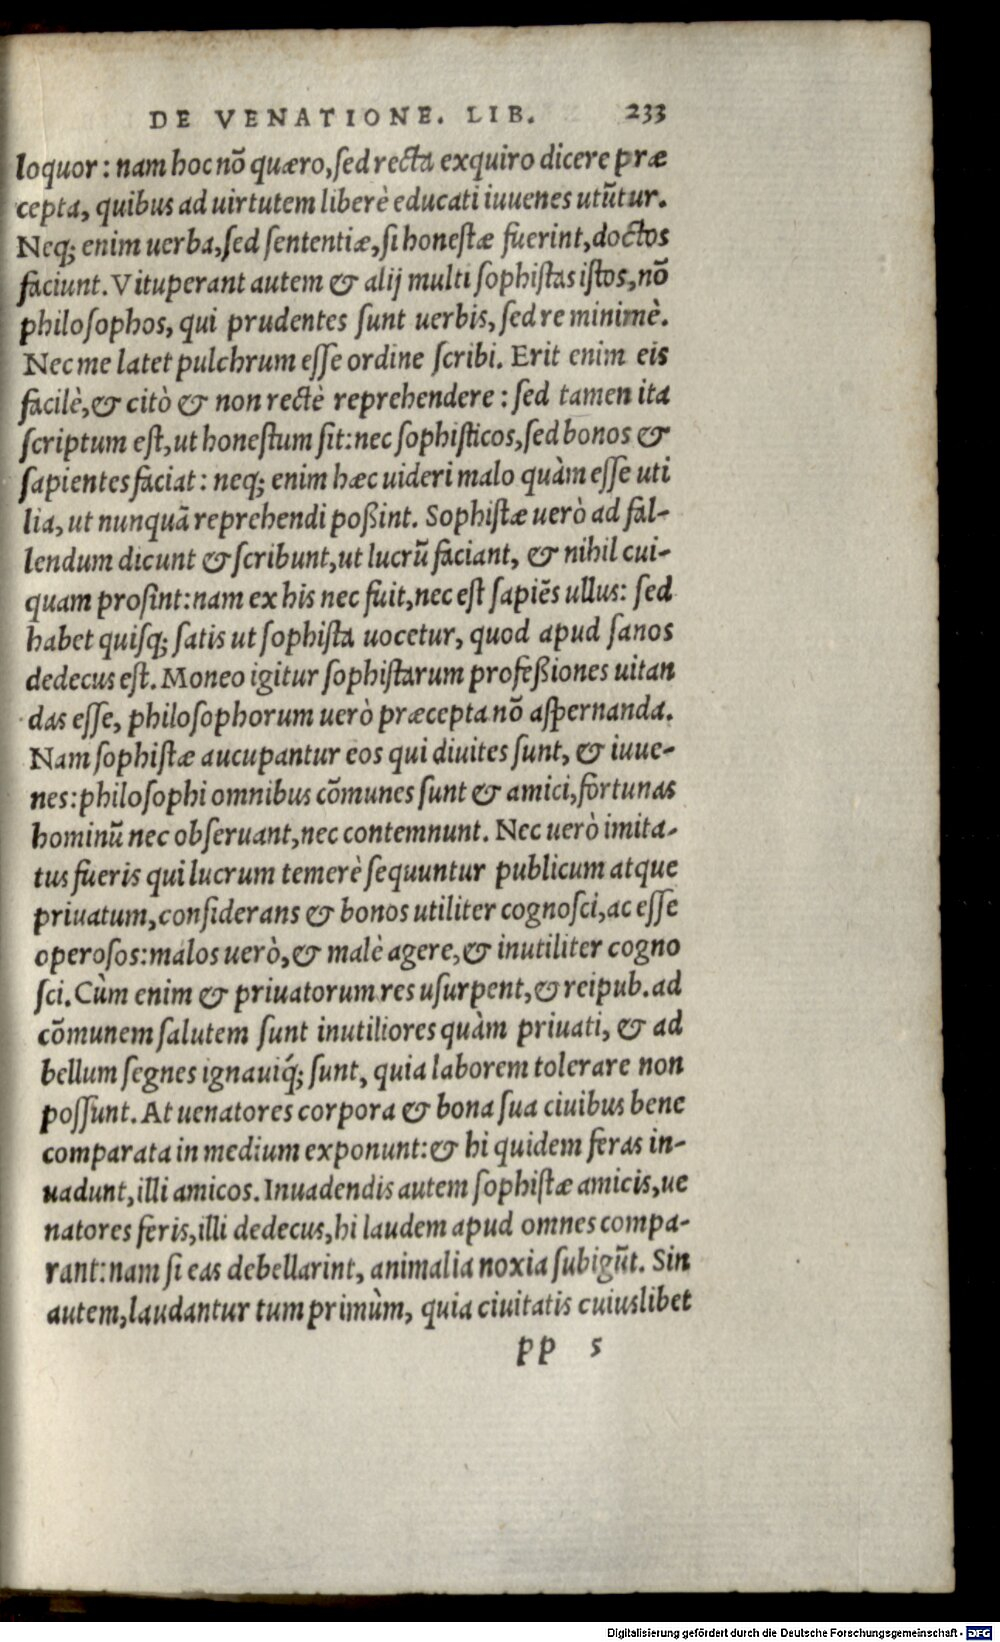 DE VENATIONE. LIB. 233
loquor: nam hoc nō quæro, sed recta exquiro dicere præ
cepta, quibus ad uirtutem liberè educati iuuenes utūtur.
Neq; enim uerba, sed sententiæ, si honestæ fuerint, doctos
faciunt. Vituperant autem & alij multi sophistas istos, nō
philosophos, qui prudentes sunt uerbis, sed re minimè.
Nec me latet pulchrum esse ordine scribi. Erit enim eis
facilè, & citò & non rectè reprehendere: sed tamen ita
scriptum est, ut honestum sit: nec sophisticos, sed bonos &
sapientes faciat: neq; enim hæc uideri malo quàm esse uti
lia, ut nunquā reprehendi poßint. Sophistæ uerò ad fal-
lendum dicunt & scribunt, ut lucrū faciant, & nihil cui-
quam prosint: nam ex his nec fuit, nec est sapiēs ullus: sed
habet quisq; satis ut sophista uocetur, quod apud sanos
dedecus est. Moneo igitur sophistarum profeßiones uitan
das esse, philosophorum uerò præcepta nō aspernanda.
Nam sophistæ aucupantur eos qui diuites sunt, & iuue-
nes: philosophi omnibus cōmunes sunt & amici, fortunas
hominū nec obseruant, nec contemnunt. Nec uerò imita-
tus fueris qui lucrum temerè sequuntur publicum atque
priuatum, considerans & bonos utiliter cognosci, ac esse
operosos: malos uerò, & malè agere, & inutiliter cogno
sci. Cùm enim & priuatorum res usurpent, & reipub. ad
cōmunem salutem sunt inutiliores quàm priuati, & ad
bellum segnes ignauiq́; sunt, quia laborem tolerare non
possunt. At uenatores corpora & bona sua ciuibus bene
comparata in medium exponunt: & hi quidem feras in-
uadunt, illi amicos. Inuadendis autem sophistæ amicis, ue
natores feris, illi dedecus, hi laudem apud omnes compa-
rant: nam si eas debellarint, animalia noxia subigūt. Sin
autem, laudantur tum primùm, quia ciuitatis cuiuslibet
pp 5
Digitalisierung gefördert durch die Deutsche Forschungsgemeinschaft - DFG